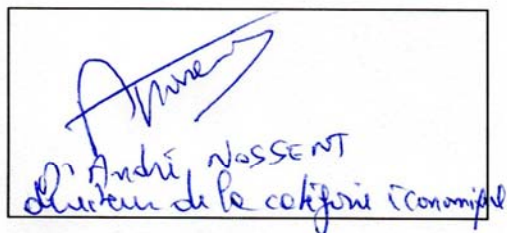 André NOSSENT
directeur de la catégorie économique